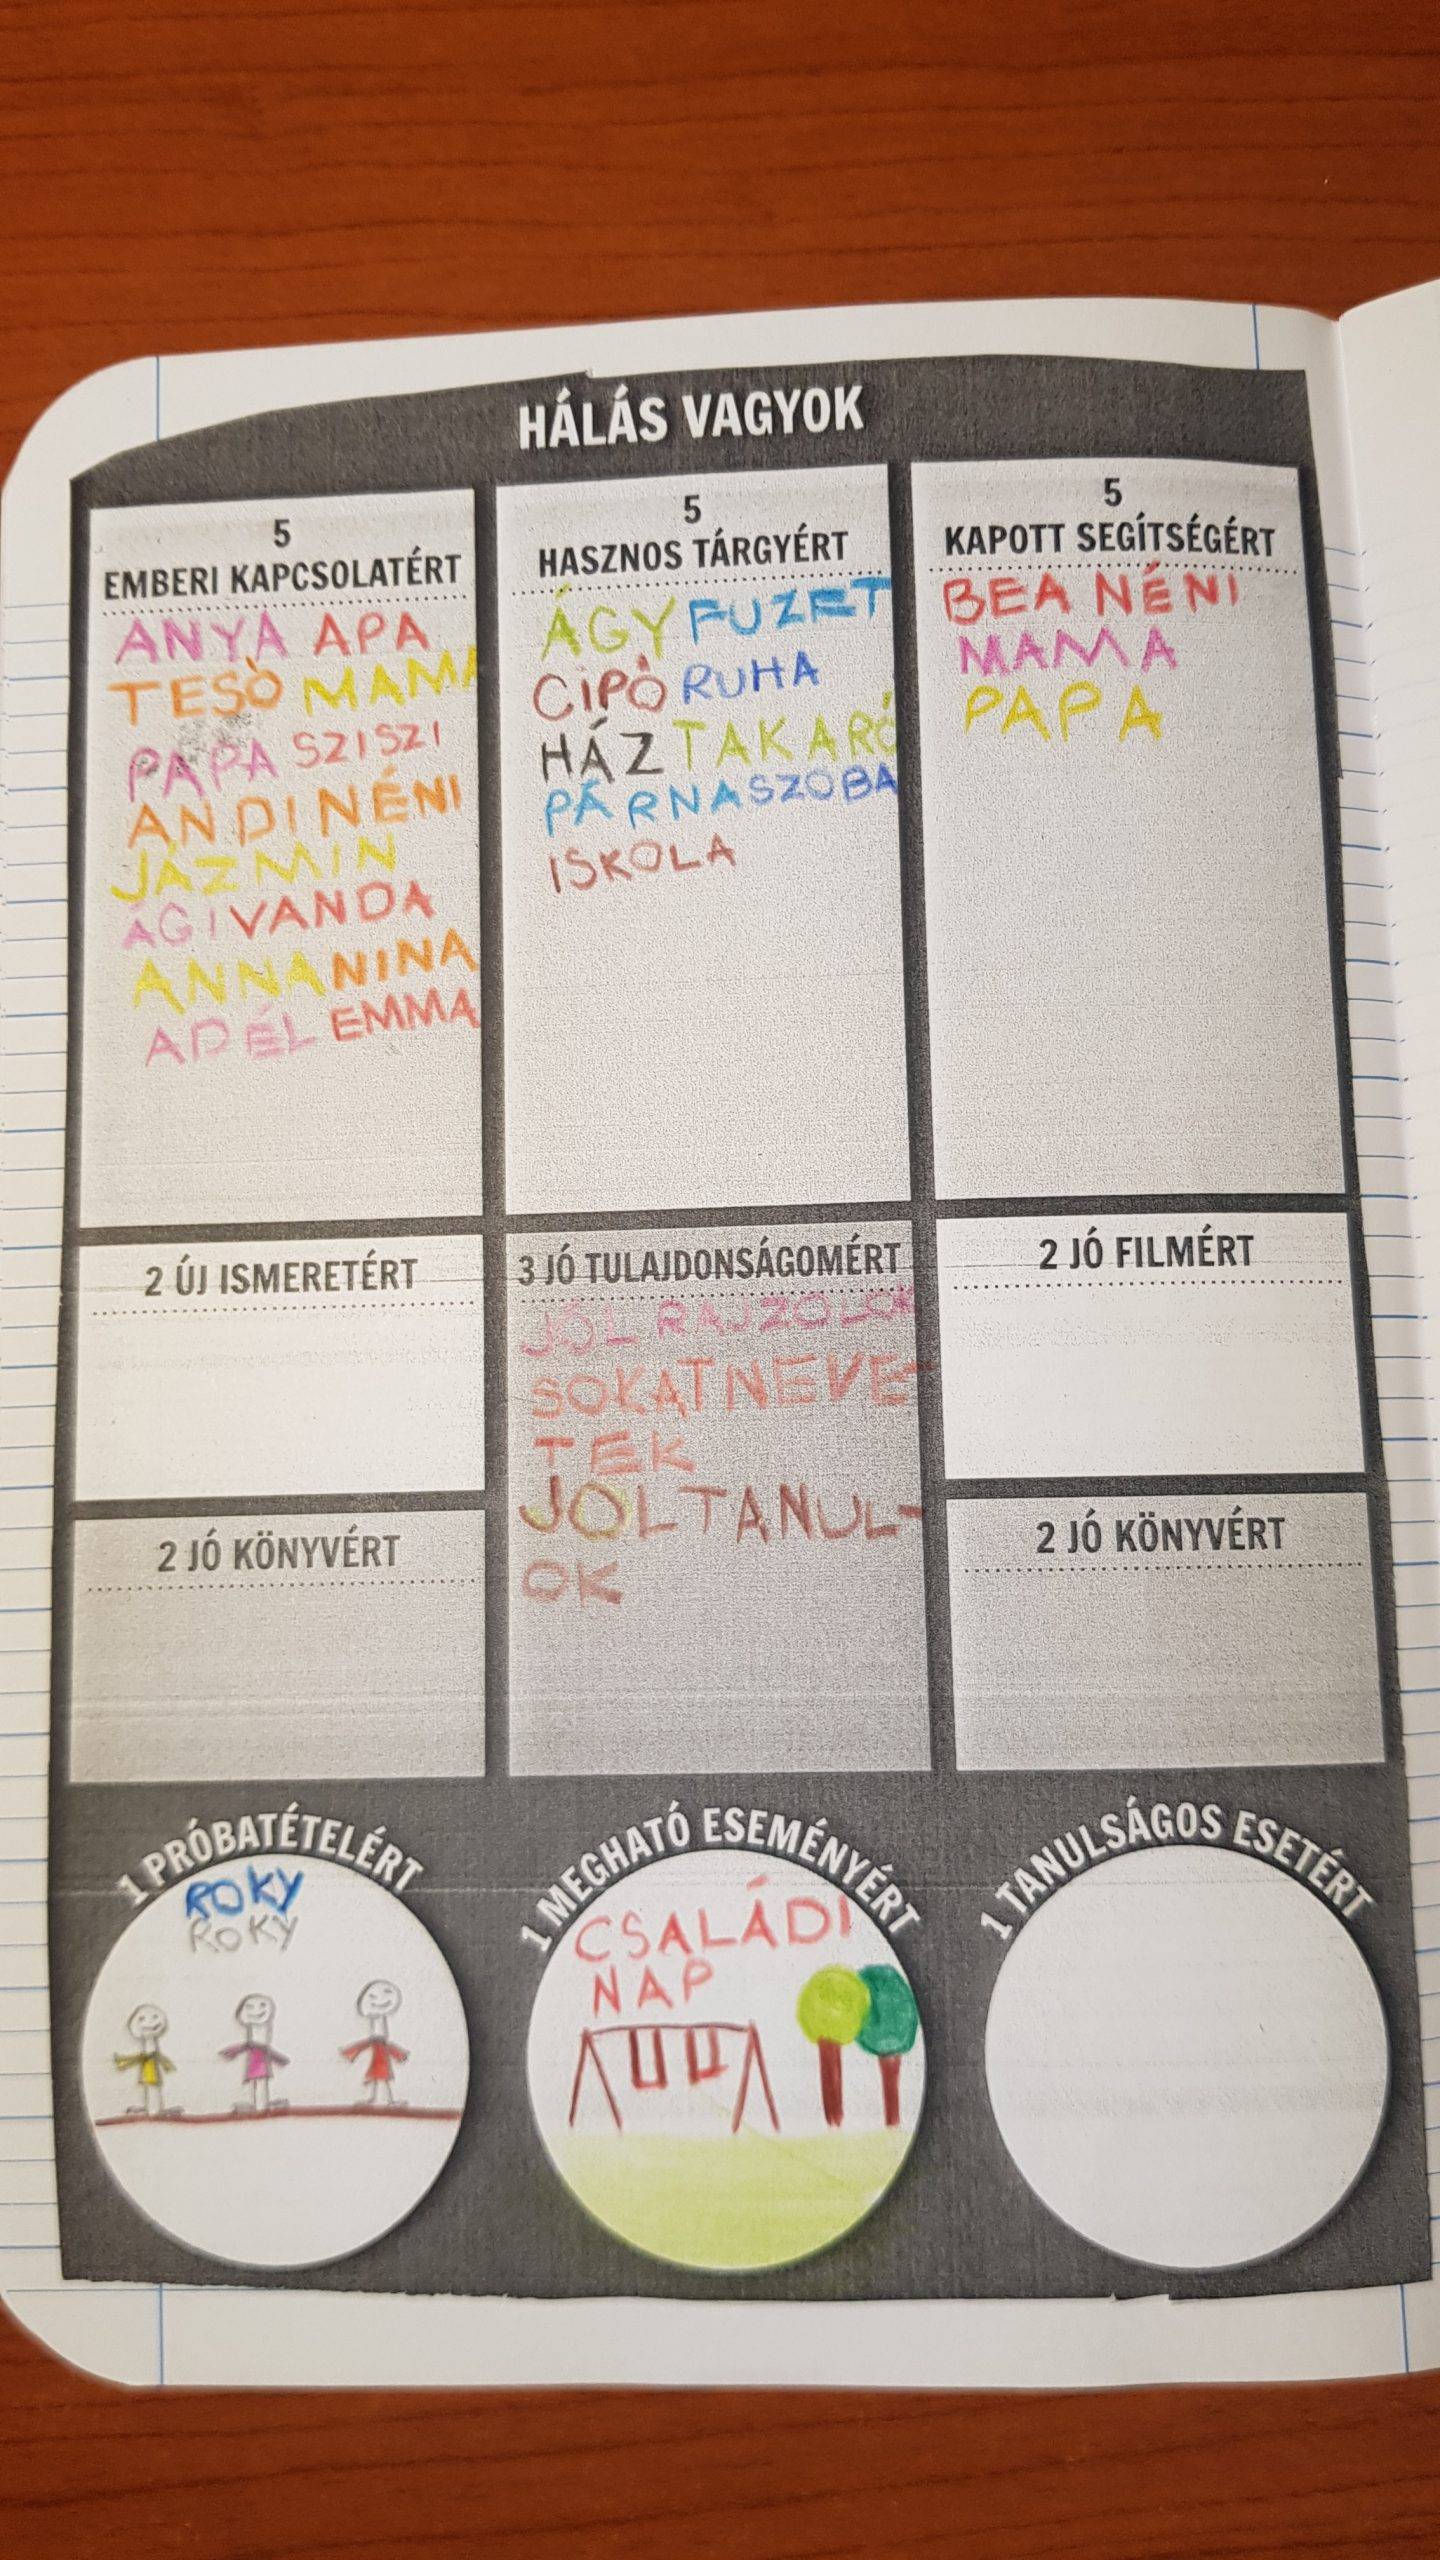 HÁLÁS VAGYOK
5
EMBERI KAPCSOLATÉRT
ANYA APA
TESÓ MAMA
PAPA SZISZI
ANDI NÉNI
JÁZMIN
ÁGI VANDA
ANNA NINA
ADÉL EMMA
5
HASZNOS TÁRGYÉRT
ÁGY FUZET
CIPŐ RUHA
HÁZ TAKARÓ
PÁRNA SZOBA
ISKOLA
5
KAPOTT SEGÍTSÉGÉRT
BEA NÉNI
MAMA
PAPA
2 ÚJ ISMERETÉRT
3 JÓ TULAJDONSÁGOMÉRT
JÓL RAJZOLOK
SOKAT NEVE-
TEK
JOL TANUL-
OK
2 JÓ FILMÉRT
2 JÓ KÖNYVÉRT
2 JÓ KÖNYVÉRT
1 PRÓBATÉTELÉRT
ROKY
ROKY
1 MEGHATÓ ESEMÉNYÉRT
CSALÁDI
NAP
1 TANULSÁGOS ESETÉRT